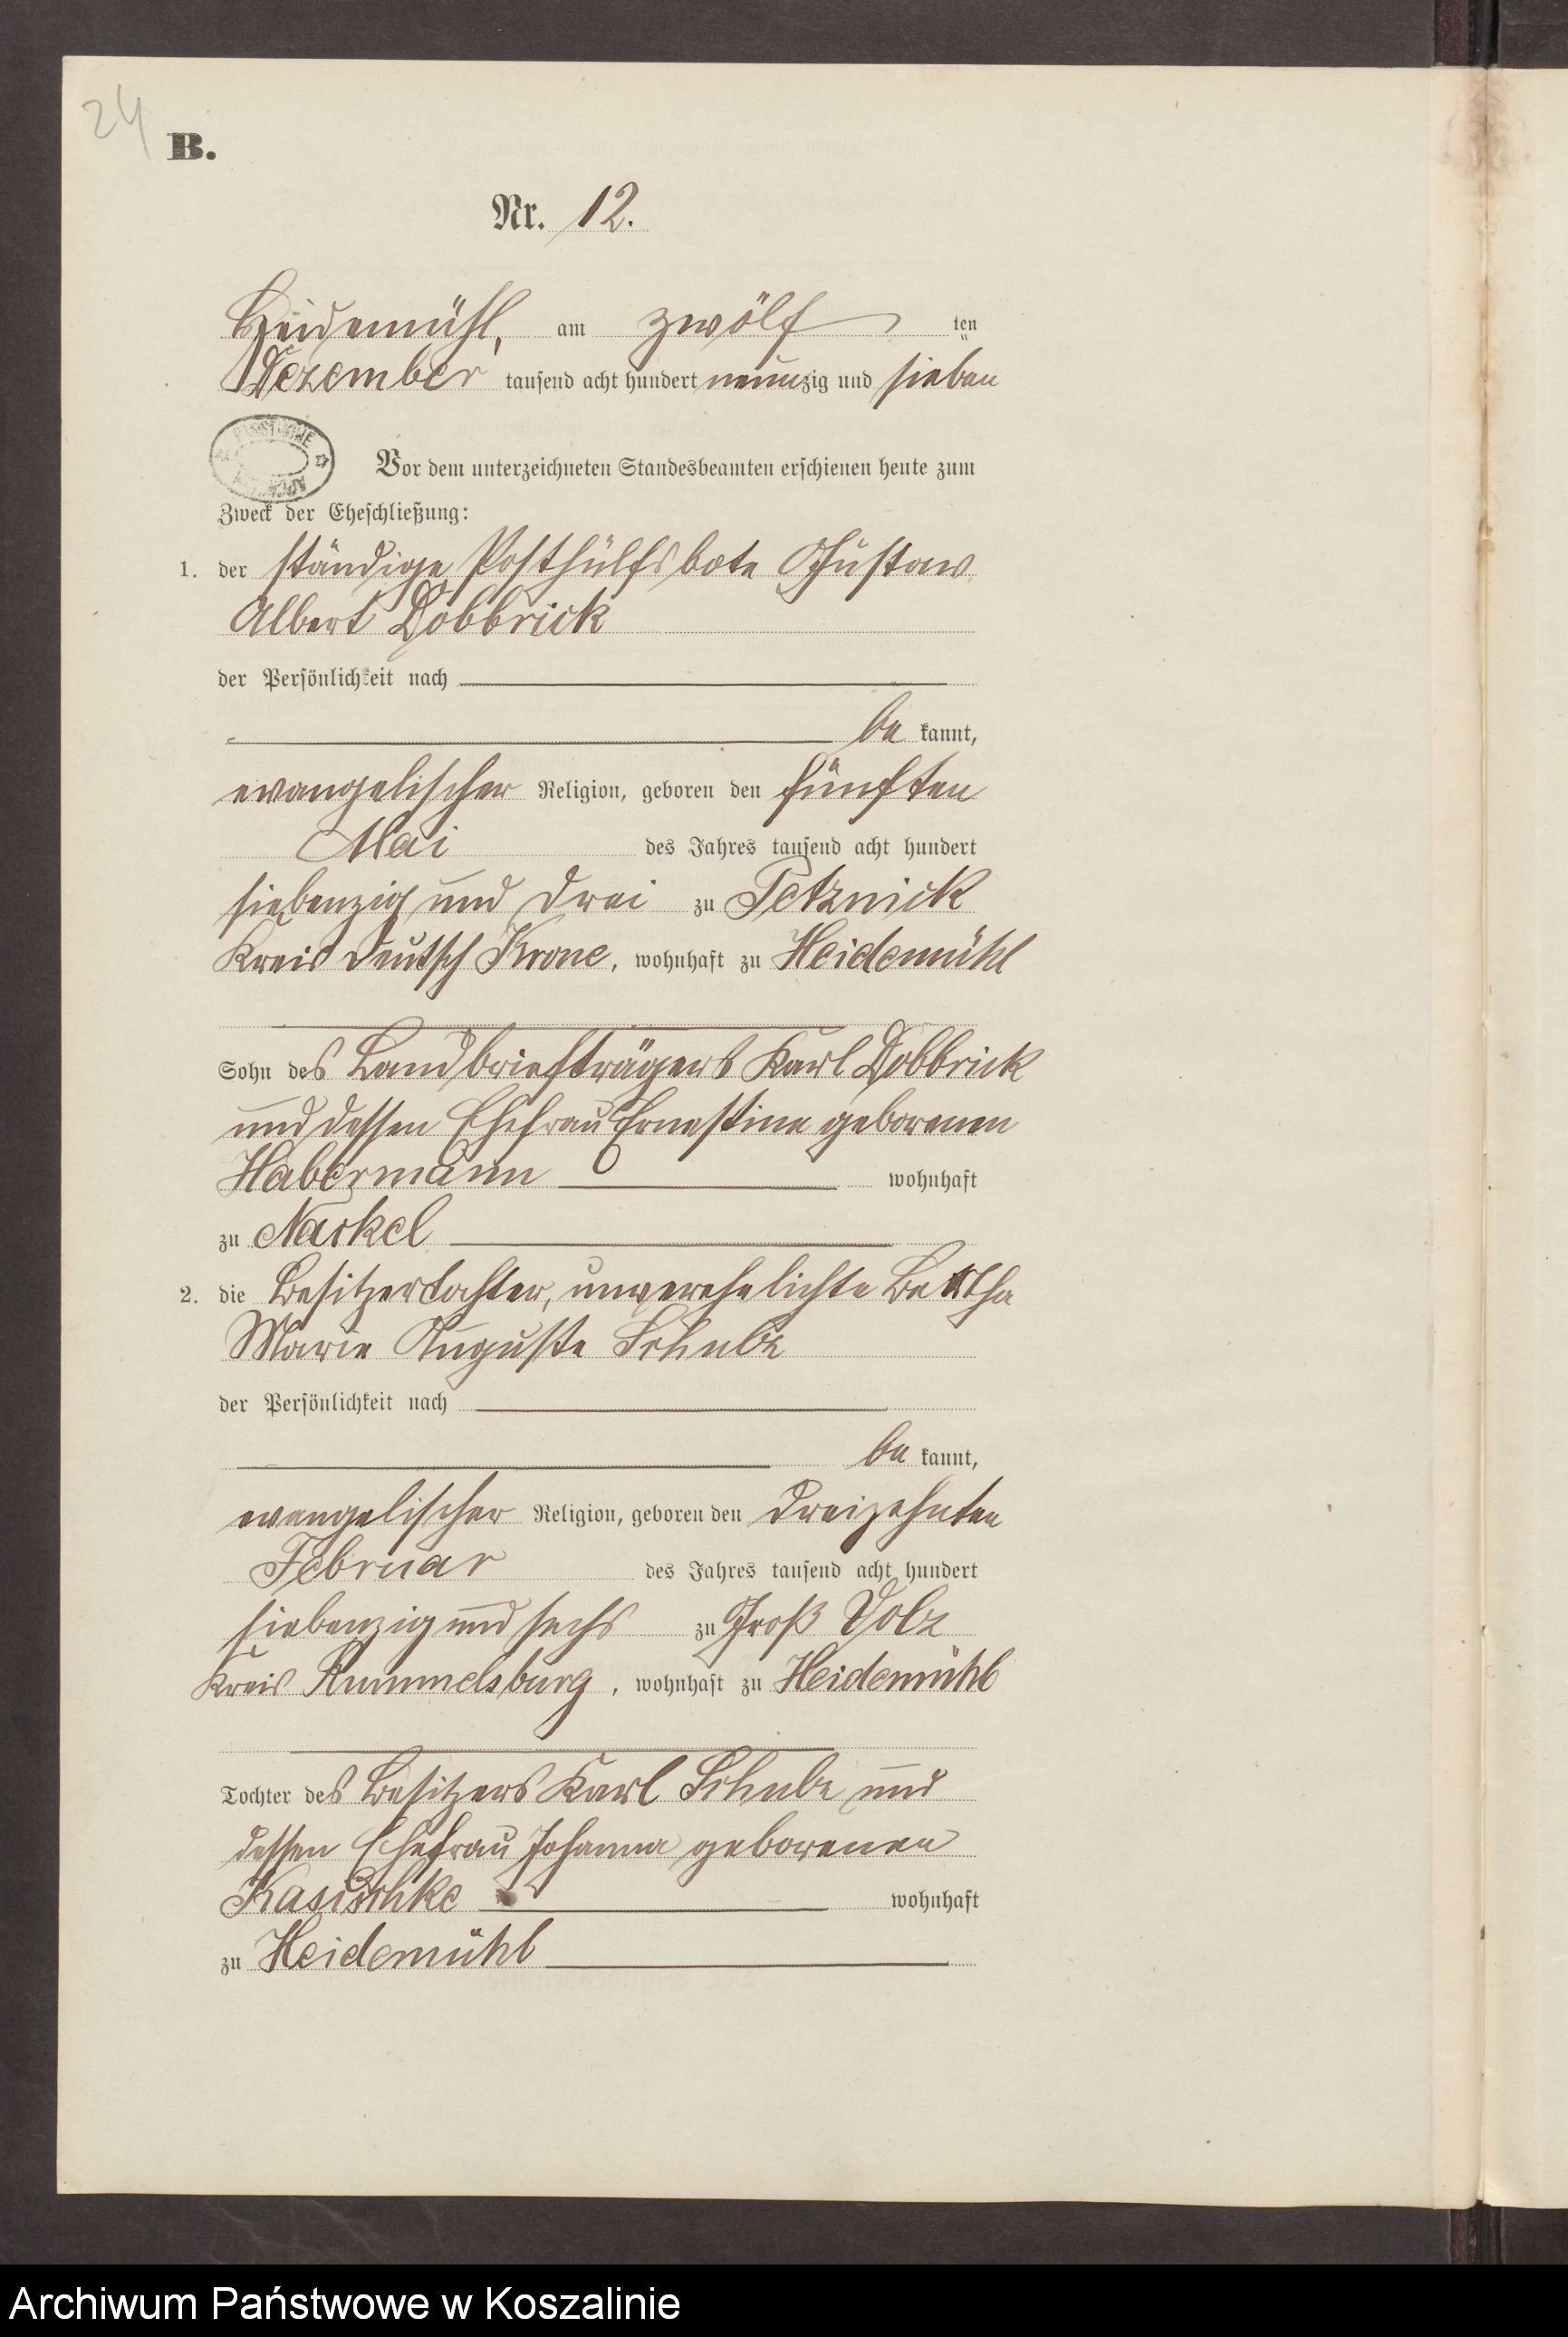 24
B.
Nr. 12.
Heidemühl, am zwölf ten
Dezember tausend acht hundert neunzig und sieben
Vor dem unterzeichneten Standesbeamten erschienen heute zum
Zweck der Eheschließung:
1. der ständige Posthülfsbote Gustav
Albert Dobbrick
der Persönlichkeit nach
be kannt,
evangelischer Religion, geboren den fünften
Mai des Jahres tausend acht hundert
siebenzig und drei zu Petznick
Kreis Deutsch Krone, wohnhaft zu Heidemühl
Sohn des Landbriefträgers Karl Dobbrick
und dessen Ehefrau Ernestine geborenen
Habermann wohnhaft
zu Naskel
2. die Besitzertochter, unverehelichte Bertha
Marie Auguste Schulz
der Persönlichkeit nach
be kannt,
evangelischer Religion, geboren den dreizehnten
Februar des Jahres tausend acht hundert
siebenzig und sechs zu Groß Volz
Kreis Rummelsburg, wohnhaft zu Heidemühl
Tochter des Besitzers Karl Schulz und
dessen Ehefrau Johanna geborenen
Kasischke wohnhaft
zu Heidemühl
Archiwum Państwowe w Koszalinie